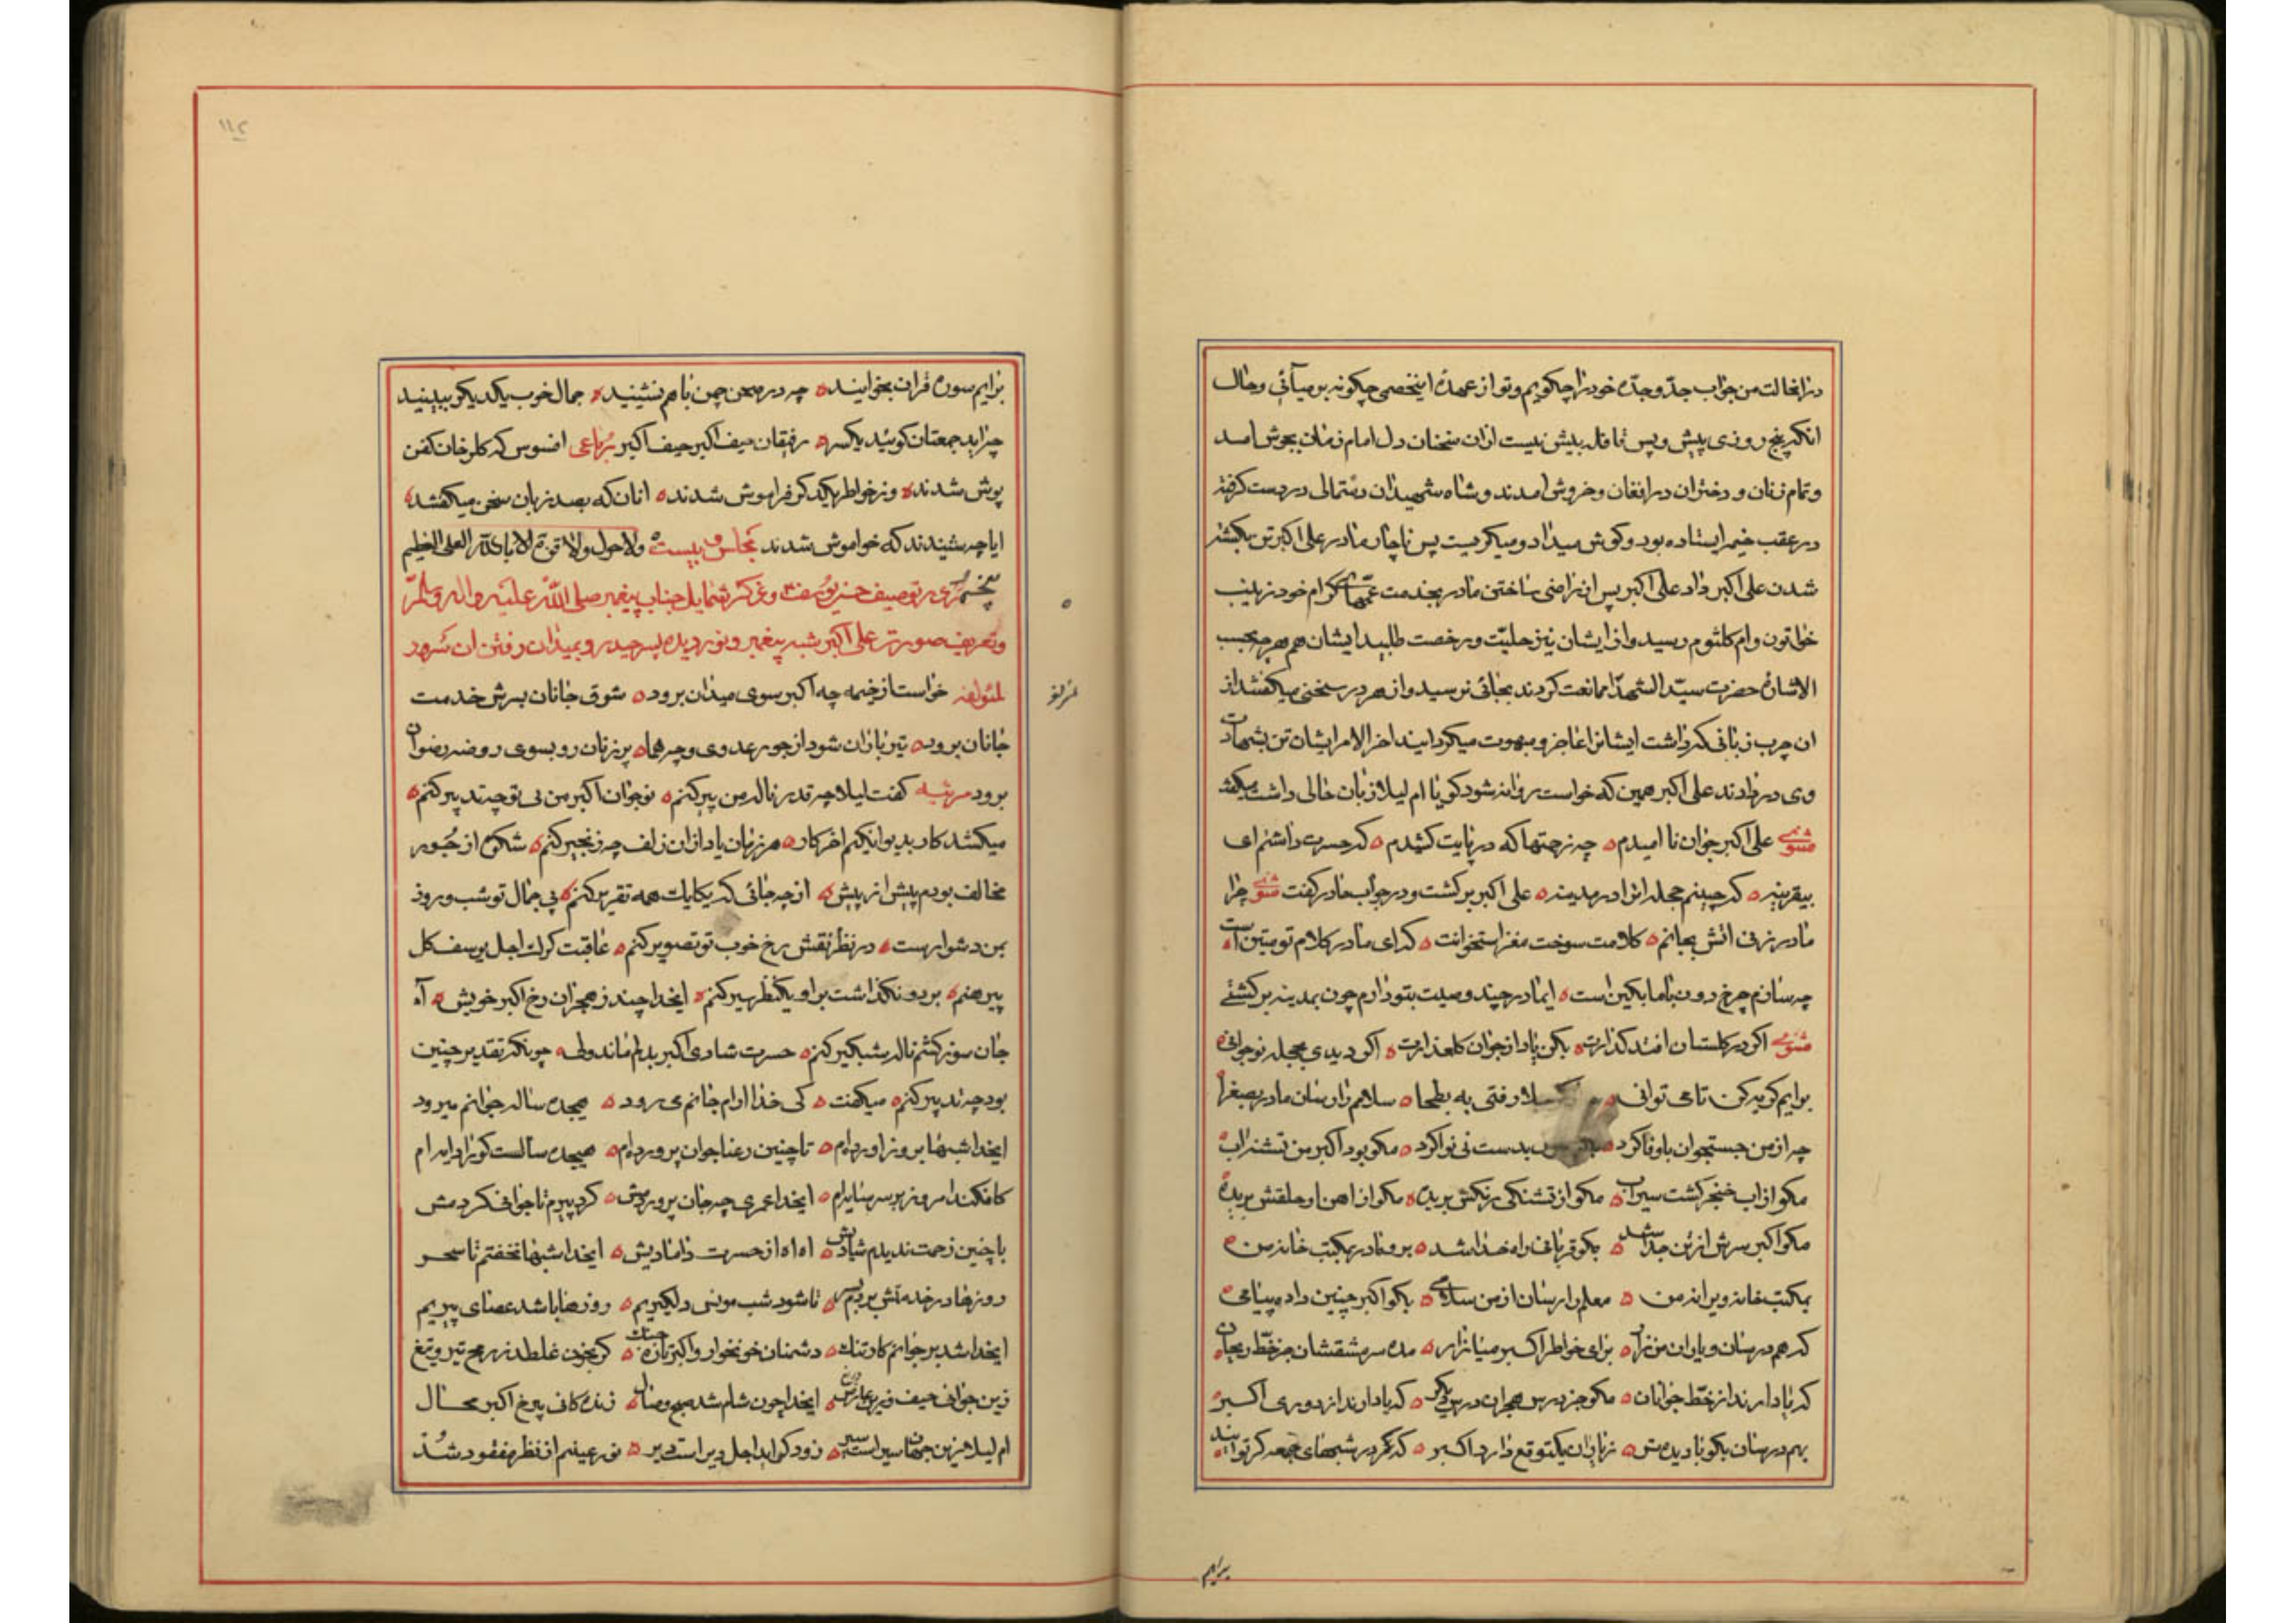 در انحالت من جواب جدّ و جدّه خود را چکویم و تو از عهدهٔ اینخصمی چکونه بر میآئی و حال
انکه پنج روزی پیش و پس تا قافله بیش نیست ازان سخنان دل امام زمان بجوش امد
و تمام زنان و دختران در افغان و خروش امدند و شاه شهیدان دستمالی در دست کرفته
در عقب خیمه ایستاده بود و کوش میداد و میکریست پس ناچار مادر علی اکبر تن بکشته
شدن علی اکبر داد علی اکبر پس از راضی ساختن مادر بخدمت عمّهای کرام خود زینب
خاتون و ام کلثوم رسید و از ایشان نیز حلیّت و رخصت طلبید ایشان هم هر چه بحسب
الاشارهٔ حضرت سیّد الشهدا ممانعت کردند بجائی نرسید و از هر در سخنی میکفتند از
ان چرب زبانی که داشت ایشانرا عاجز و مبهوت میکردانید اخر الامر ایشان تن بشهادت
وی در دادند علی اکبر همین که خواست روانه شود کویا ام لیلا زبان حالی داشت میکفت
مثنوی علی اکبر جوان نا امیدم چه زحمتها که در پایت کشیدم که حسرت داشتم ای
بیقرینه که چینم حجله ات را در مدینه علی اکبر برکشت و در جواب مادر کفت مثنوی چرا
مادر زنی اتش بجانم کلامت سوخت مغز استخوانت که ای مادر کلام تو متین است
چه سازم چرخ دون با ما بکین است ایمادر چند وصیت بتو دارم چون بمدینه برکشتی
مثنوی اکر در کلستان افتد کذارت بکن یاد از جوان کلعذارت اکر دیدی بحجله نوجوانی
برایم کریه کن تا می توانی رفتی به بطحا سلامم را رسان مادر بصغرا
چه از من جستجوان باوفا کرد بدست نی نوا کرد مکو بود اکبر من تشنه اب
مکو از اب خنجر کشت سیراب مکو از تشنکی رنکش پریده مکو از اهن او حلقش بریده
مکو اکبر سرش از تن جدا شد بکو قربانی راه خدا شد برو مادر بمکتب خانه من
بمکتب خانه ویرانه من معلم را رسان از من سلامی بکو اکبر چنین داد پیامی
که هم درسان و یاران من زار برای خاطر اکبر میازار مده سرمشقشان جز خطّ ریحان
که یاد ارند از خطّ جوانان مکو جز درس هجران درس دیکر که یاد ارند از دوری اکبر
بهم درسان بکو با دیده تر زیاران یکتوقع دارد اکبر که کر در شبهای جمعه کر توانید
برایم
برایم سوره قران بخوانید چه در صحن چمن با هم نشینید جمال خوب یکدیکر ببینید
چرا ید جمعتان کوئید یکسر رفیقان حیف اکبر حیف اکبر رباعی افسوس که کلرخان کفن
پوش شدند وز خاطر یکدیکر فراموش شدند انان که بصد زبان سخن میکفتند
ایا چه شنیدند که خواموش شدند مجلس بیست و ولا حول و لا قوة الا بالله العلی العظیم
پنجم در توصیف حسن یوسف و ذکر شمایل جناب پیغمبر صلی الله علیه واله وسلم
و تعریف صورت علی اکبر شبه پیغمبر و نور دیده پسر حیدر و بمیدان رفتن ان سرور
لمؤلفه خواست از خیمه چه اکبر سوی میدان برود شوق جانان بسرش خدمت
جانان برود تیر باران شود از جور عدوی و چه هما پر زنان رو بسوی روضه رضوان
برود مرثیه کفت لیلا چه قدر ناله من پیر کنم نوجوان اکبر من بی تو چه تدبیر کنم
میکشد کار بدیوانکیم اخر کار هر زمان یاد ازان زلف چه زنجیر کنم شکوه از جور
مخالف بودم پیش از پیش از چه جائی که یکایک همه تقریر کنم بی جمال تو شب و روز
بمن دشوار است در نظر نقش رخ خوب تو تصویر کنم عاقبت کرک اجل یوسف کل
پیرهنم برد و نکذاشت بر او یکنظر سیر کنم ایخدا چند ز هجران رخ اکبر خویش آه
جان سوز کشم ناله شبکیر کنم حسرت شادی اکبر بدلم ماند ولی چونکه تقدیر چنین
بود چه تدبیر کنم میکفت کی خدا ارام جانم می رود هیجده ساله جوانم میرود
ایخدا شبها بروز اورده ام تا چنین رعنا جوان پرورده ام هیجده سالست کو را دایه ام
کافکند امروز بر سر سایه ام ایخدا عمری چه جان پروردمش کرد پیرم تا جوانی کردمش
با چنین زحمت ندیدم شادیش اه اه از حسرت دامادیش ایخدا شبها نخفتم تا سحر
روزها در خدمتش بردم بسر تا شود شب مونس دلکیریم روزها باشد عصای پیریم
ایخدا شد بر جوانم کار تنک دشمنان خونخوار و اکبر تازه جنک کر بخون غلطد ز رمح تیر و تیغ
زین جوانی حیف ایخدا چون شام شد صبح وصال زنده کانی بی رخ اکبر محال
ام لیلا زین جهان سیر است سیر زود کو اید اجل دیر است دیر نور عینم از نظر مفقود شد